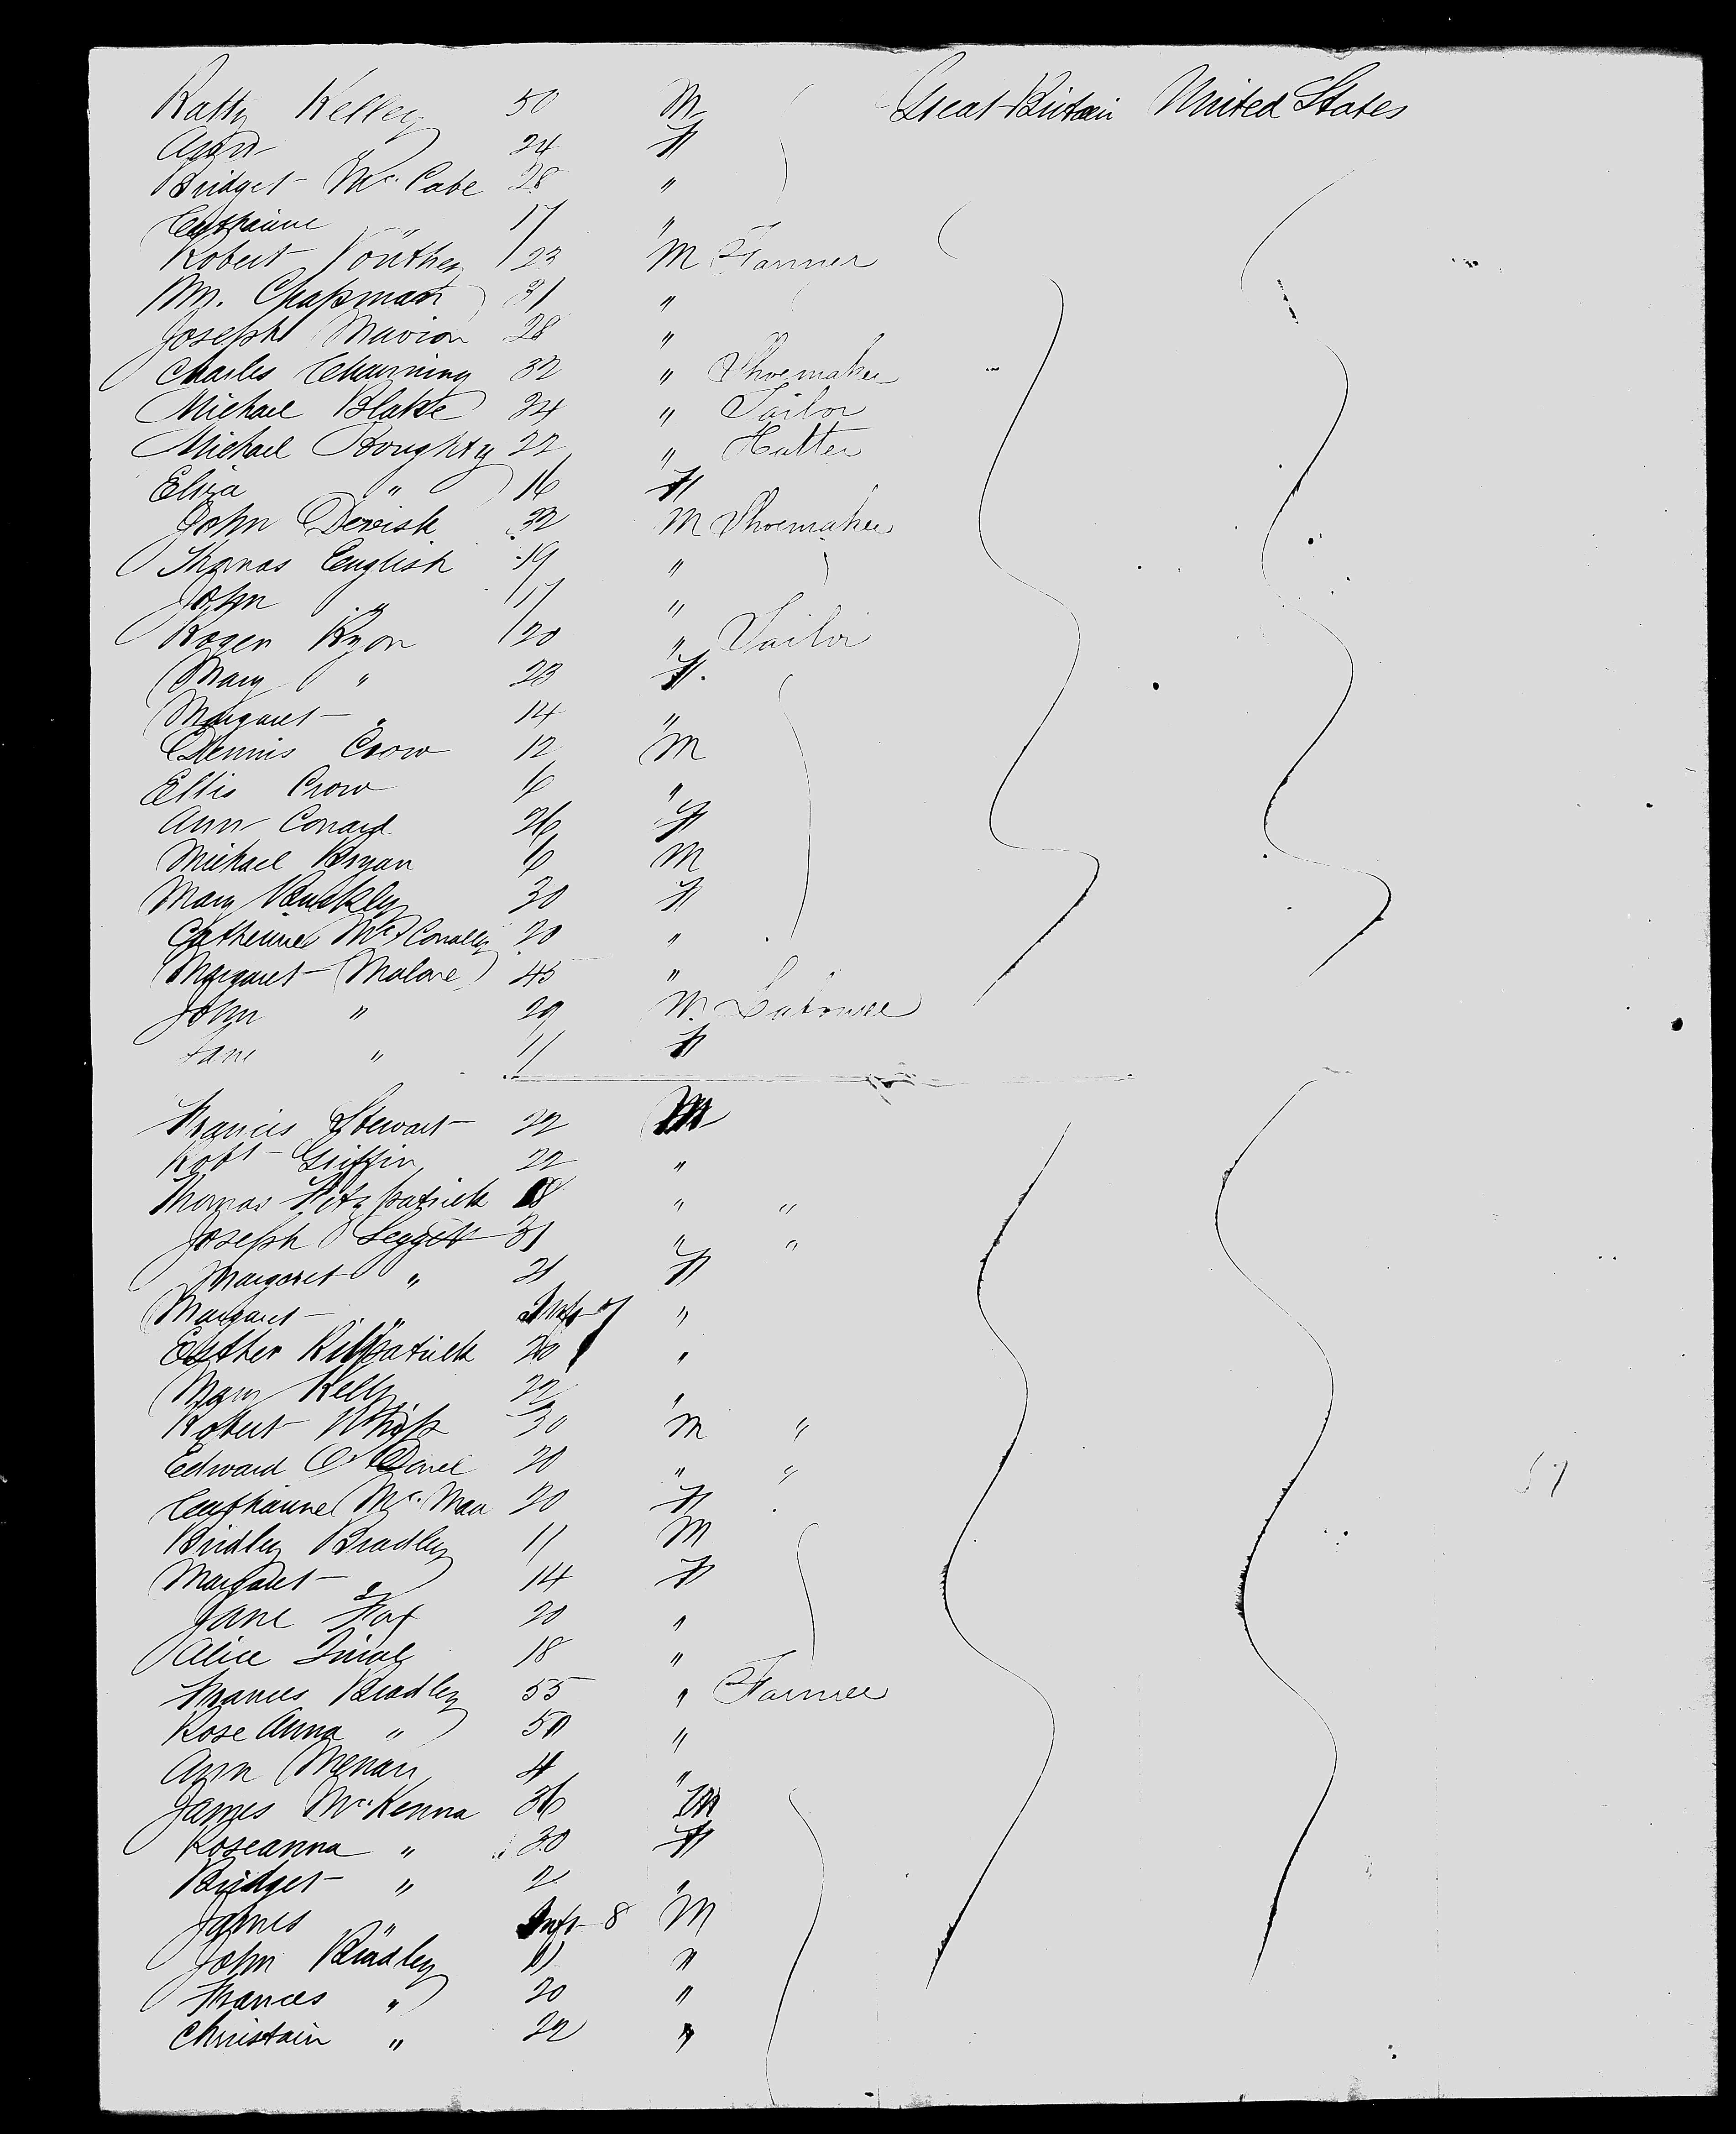 Katty Kelley 50 M Great Britain United States
Ann " 24 F
Bridget McCabe 28 "
Catharine " 17 "
Robert 23 M Farmer
Wm. Chapman 31 "
Joseph Marion 28 "
Charles Channing 32 " Shoemaker
Michael Blake 24 " Tailor
Michael Doughty 22 " Hatter
Eliza " 16 F
John Devish 32 M Shoemaker
Thomas English 19 "
John " 17 "
Roger Ryon 20 " Tailor
Mary " 23 F.
Margaret " 14 "
Dennis Crow 12 M
Ellis Crow 6 "
Ann Conard 26 F
Michael Bryan 6 M
Mary 30 F
Catherine McConally 20 "
Margaret Malone 45 "
John " 29 M. Labourer
Jane " 11 F
Francis Stewart 22 M
Robt Griffin 22 "
Thomas Fitzpatrick 18 " "
Joseph Leggett 31 " "
Margaret " 21 F
Margaret " Inft 7 "
Esther Killpatrick 20 "
Mary Kelly 22 "
Robert Whip 30 M "
Edward O'Donel 20 " "
Catharine McMan 20 F
Bridley Bradley 11 M
Margaret " 14 F
Jane Fox 20 "
Alice 18 "
Frances Bradley 55 " Farmer
Rose Anna " 50 "
Ann Menan 4 "
James McKenna 36 M
Roseanna " 30 F
Bridget " 2 "
James " Inft 8 M
John Bradley 11 "
Frances " 20 "
Christain " 22 "